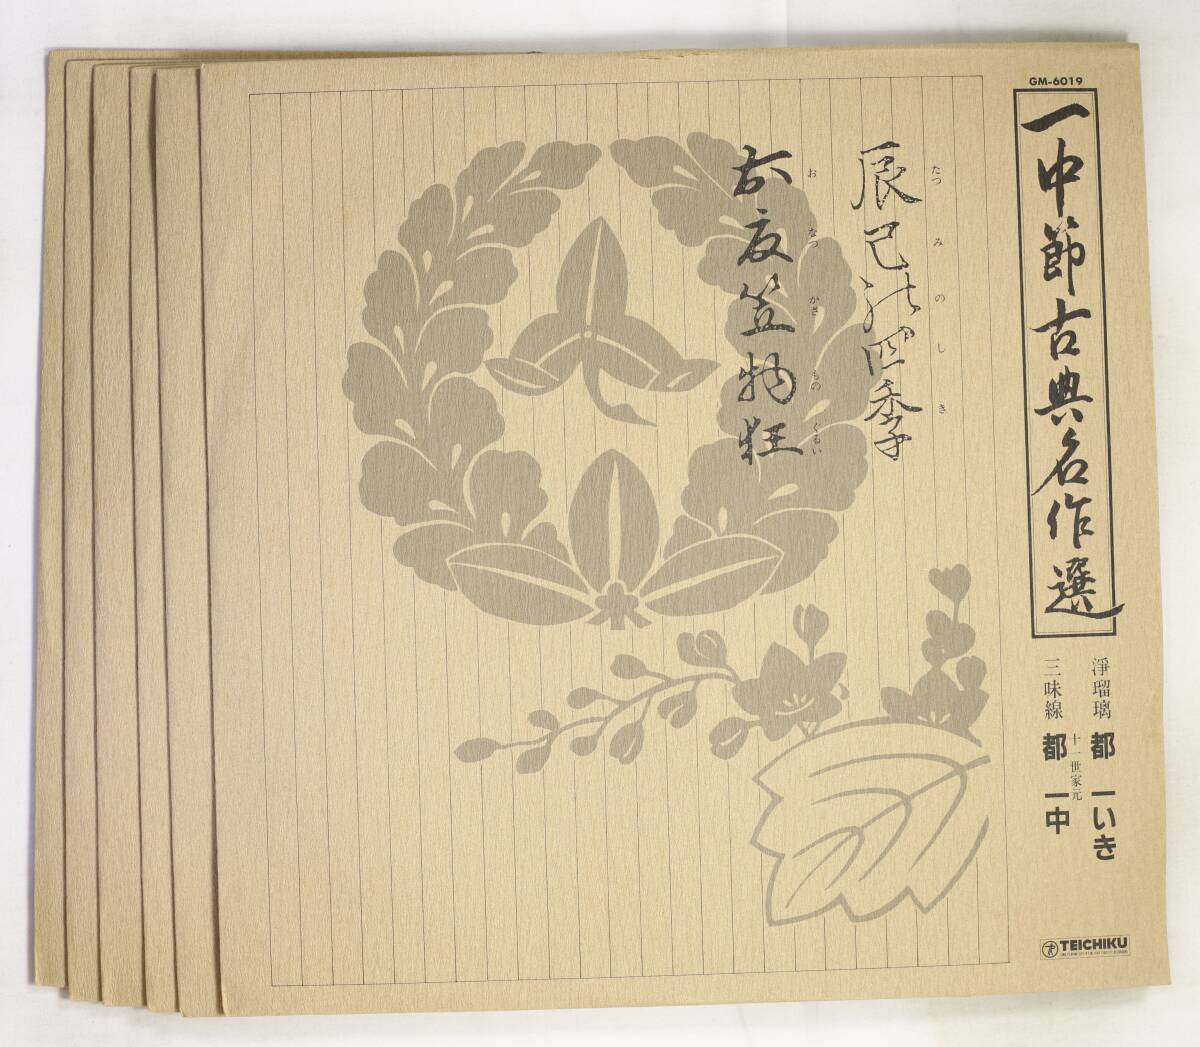 GM-6019
一中節古典名作選
浄瑠璃 都 一いき
十一世家元
三味線 都 一中
辰巳の四季
たつみのしき
お夏笠物狂
おなつかさものぐるい
TEICHIKU